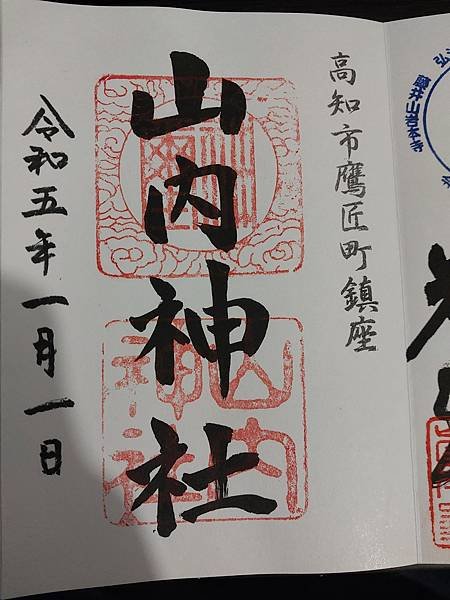 高知市鷹匠町鎮座
山内神社
山内神社
令和五年一月一日
藤井山岩本寺